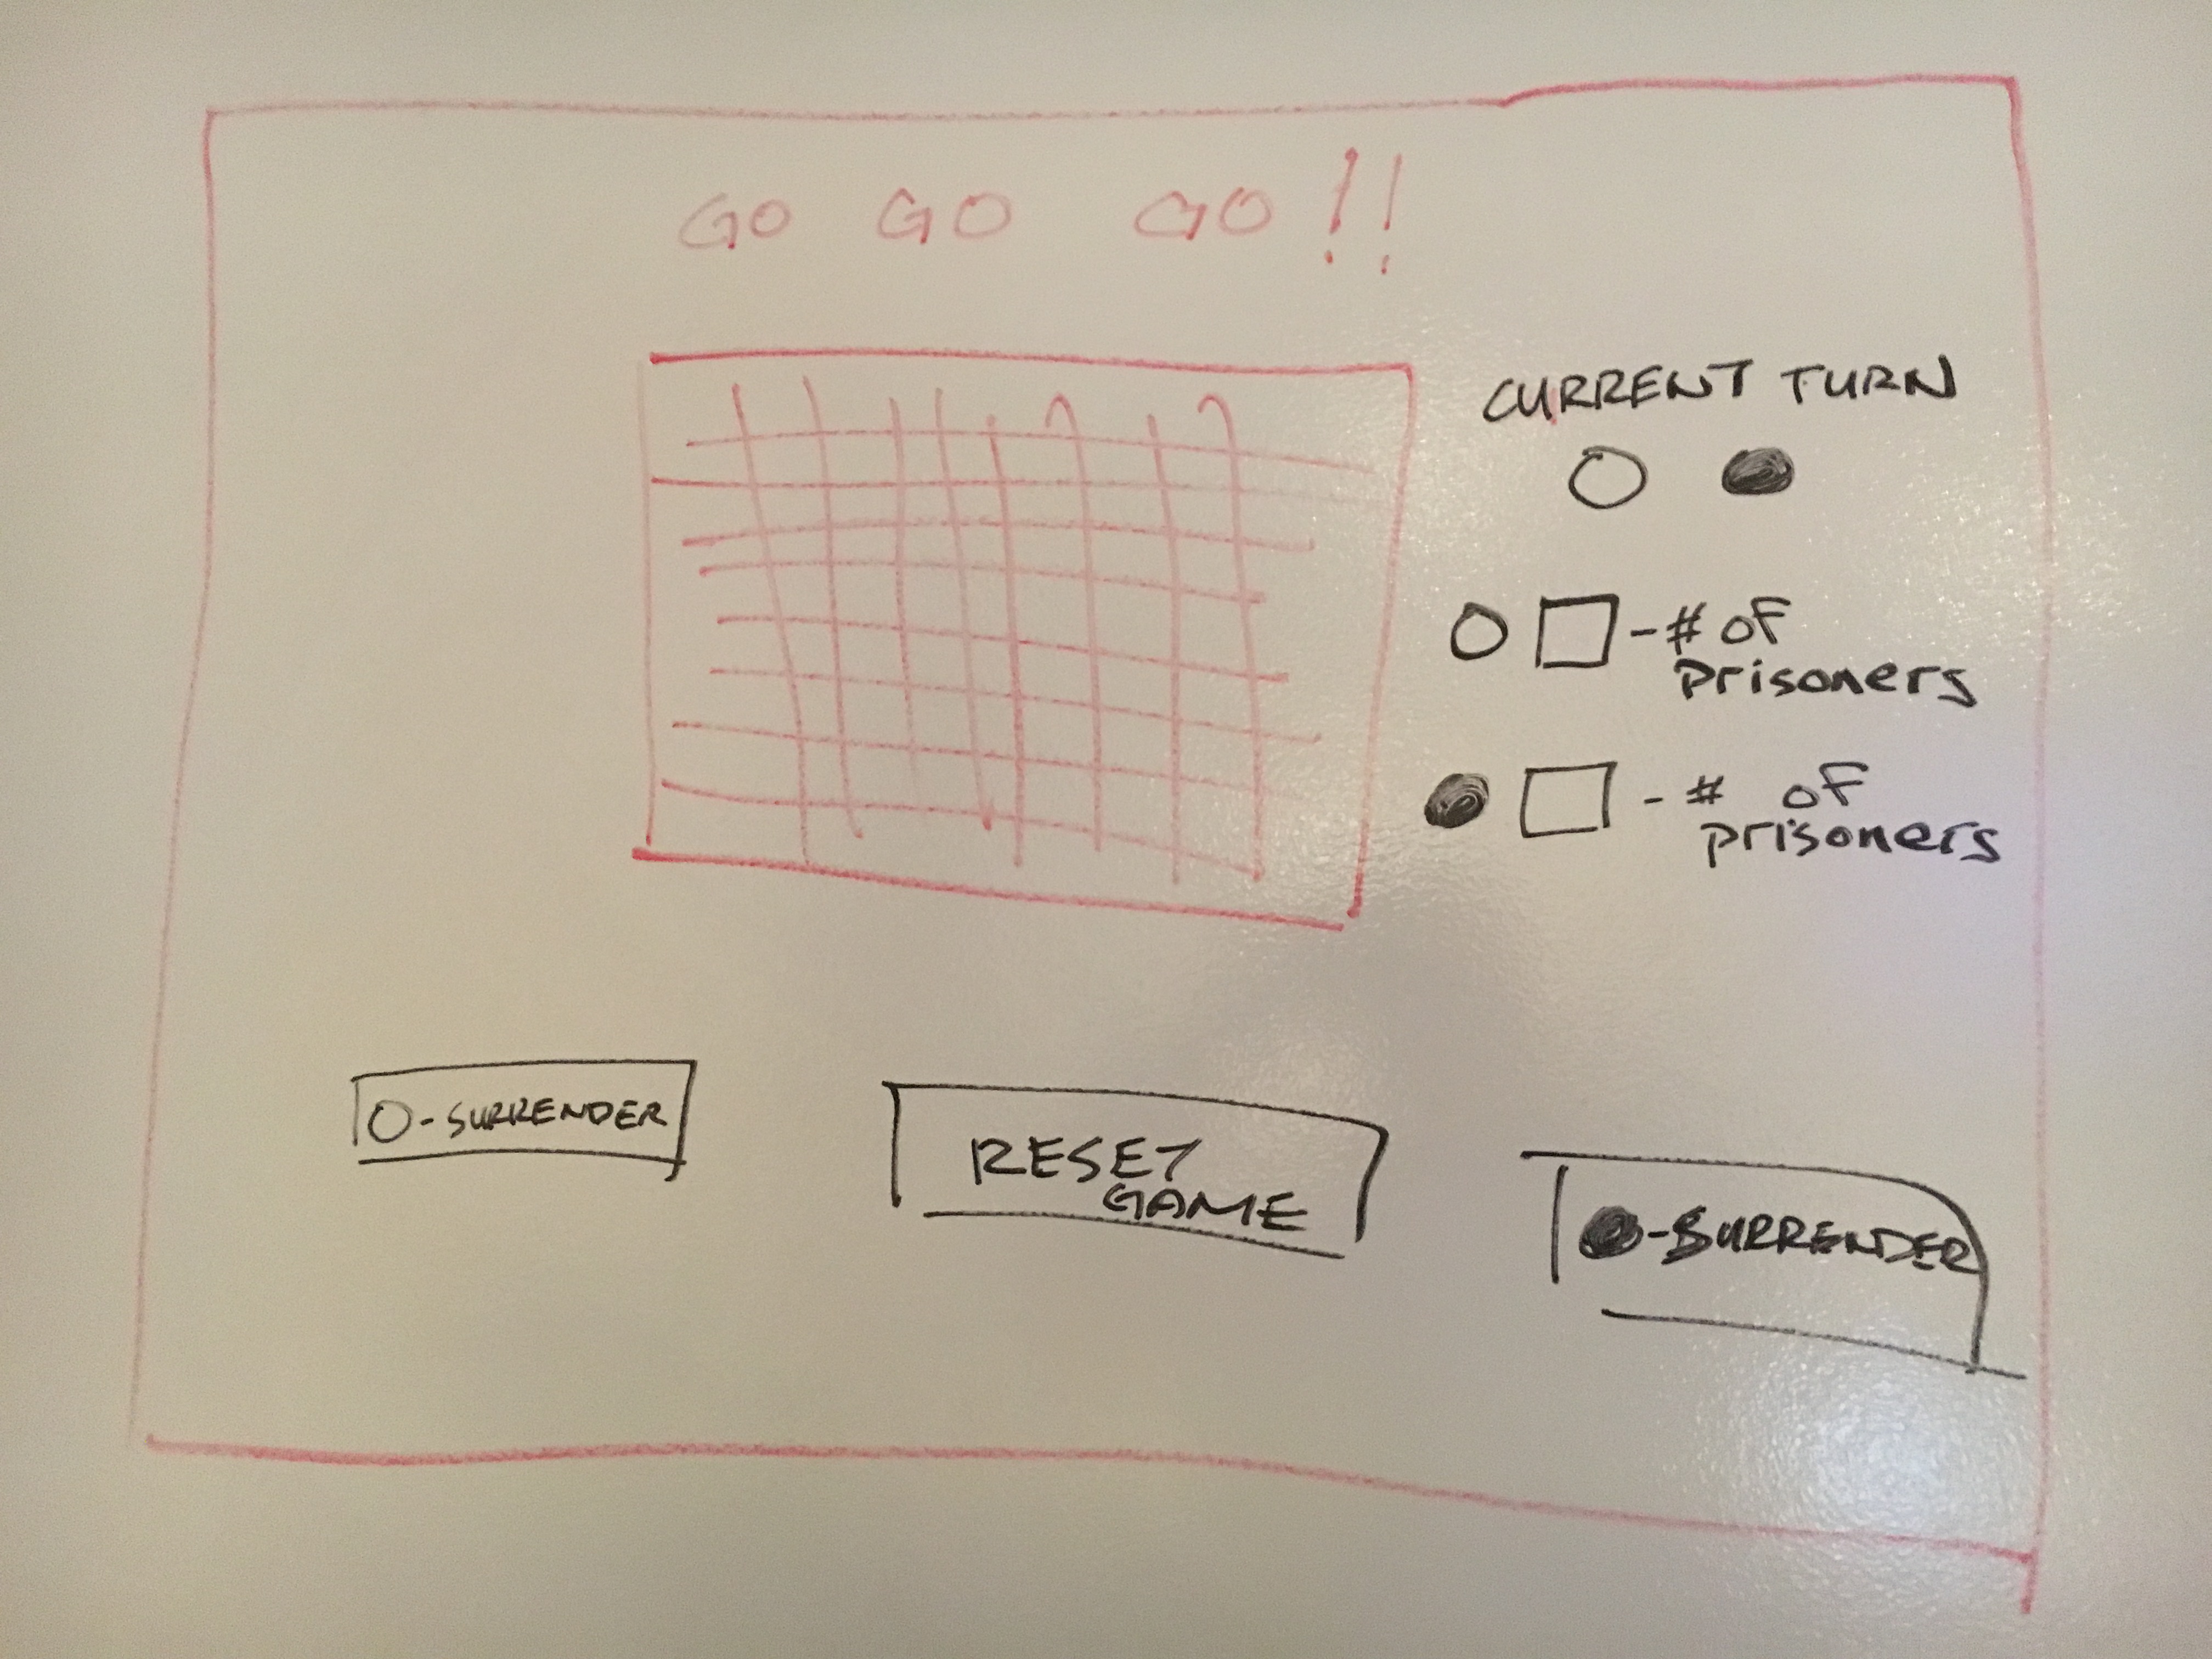 GO GO GO!!
CURRENT TURN
- # of
prisoners
- # of
prisoners
O-SURRENDER
RESET
GAME
-SURRENDER